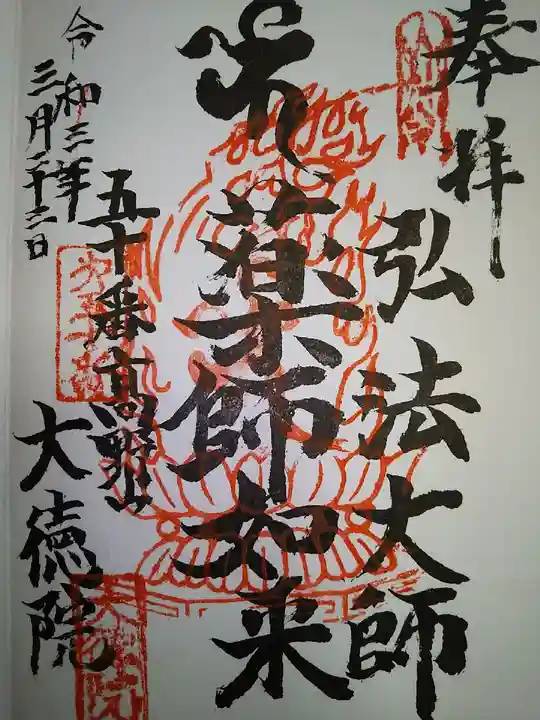 奉拝
弘法大師
薬師如来
五十番高野山
大徳院
令和三年
三月二十二日